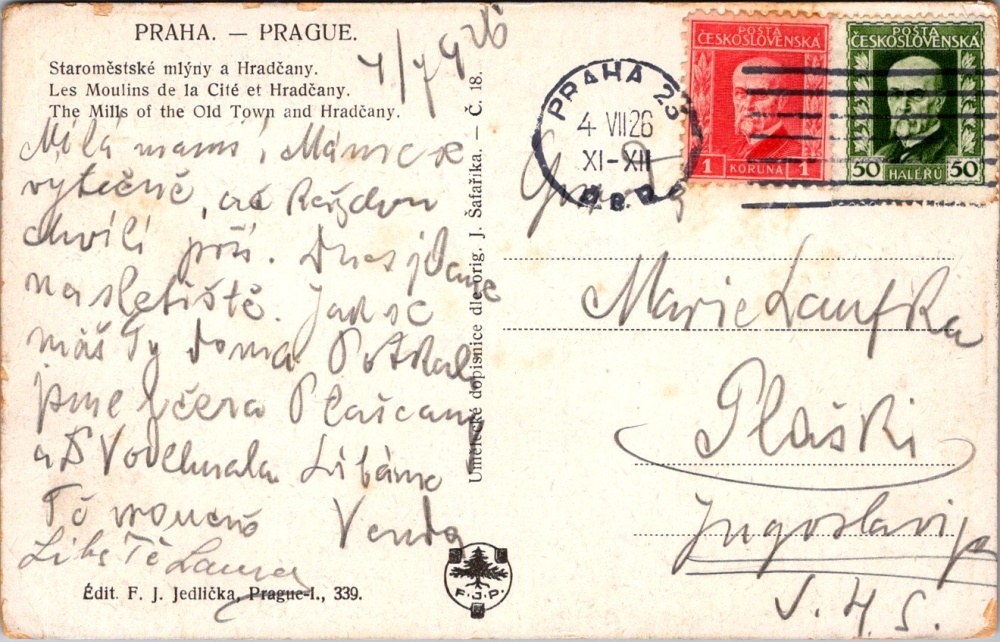 PRAHA. — PRAGUE.
Staroměstské mlýny a Hradčany.
Les Moulins de la Cité et Hradčany.
The Mills of the Old Town and Hradčany.
4/7 926
Milá mami, Máme se
výtečně, až každou
chvíli prší. Dnes jdeme
na sletiště. Jak se
máš Ty doma Potkali
jsme včera
a Vodehnala Líbáme
Tě vroucně Venda
Líbá Tě
Édit. F. J. Jedlička, Prague-I., 339.
Umělecké dopisnice dle orig. J. Šafaříka. — Č. 18.
F. J. P.
PRAHA 25
4 VII 26
XI-XII
POŠTA
ČESKOSLOVENSKÁ
1 KORUNA 1
POŠTA
ČESKOSLOVENSKÁ
50 HALÉŘŮ 50
Marie Laufka
Plaški
Jugoslavija
S. H. S.